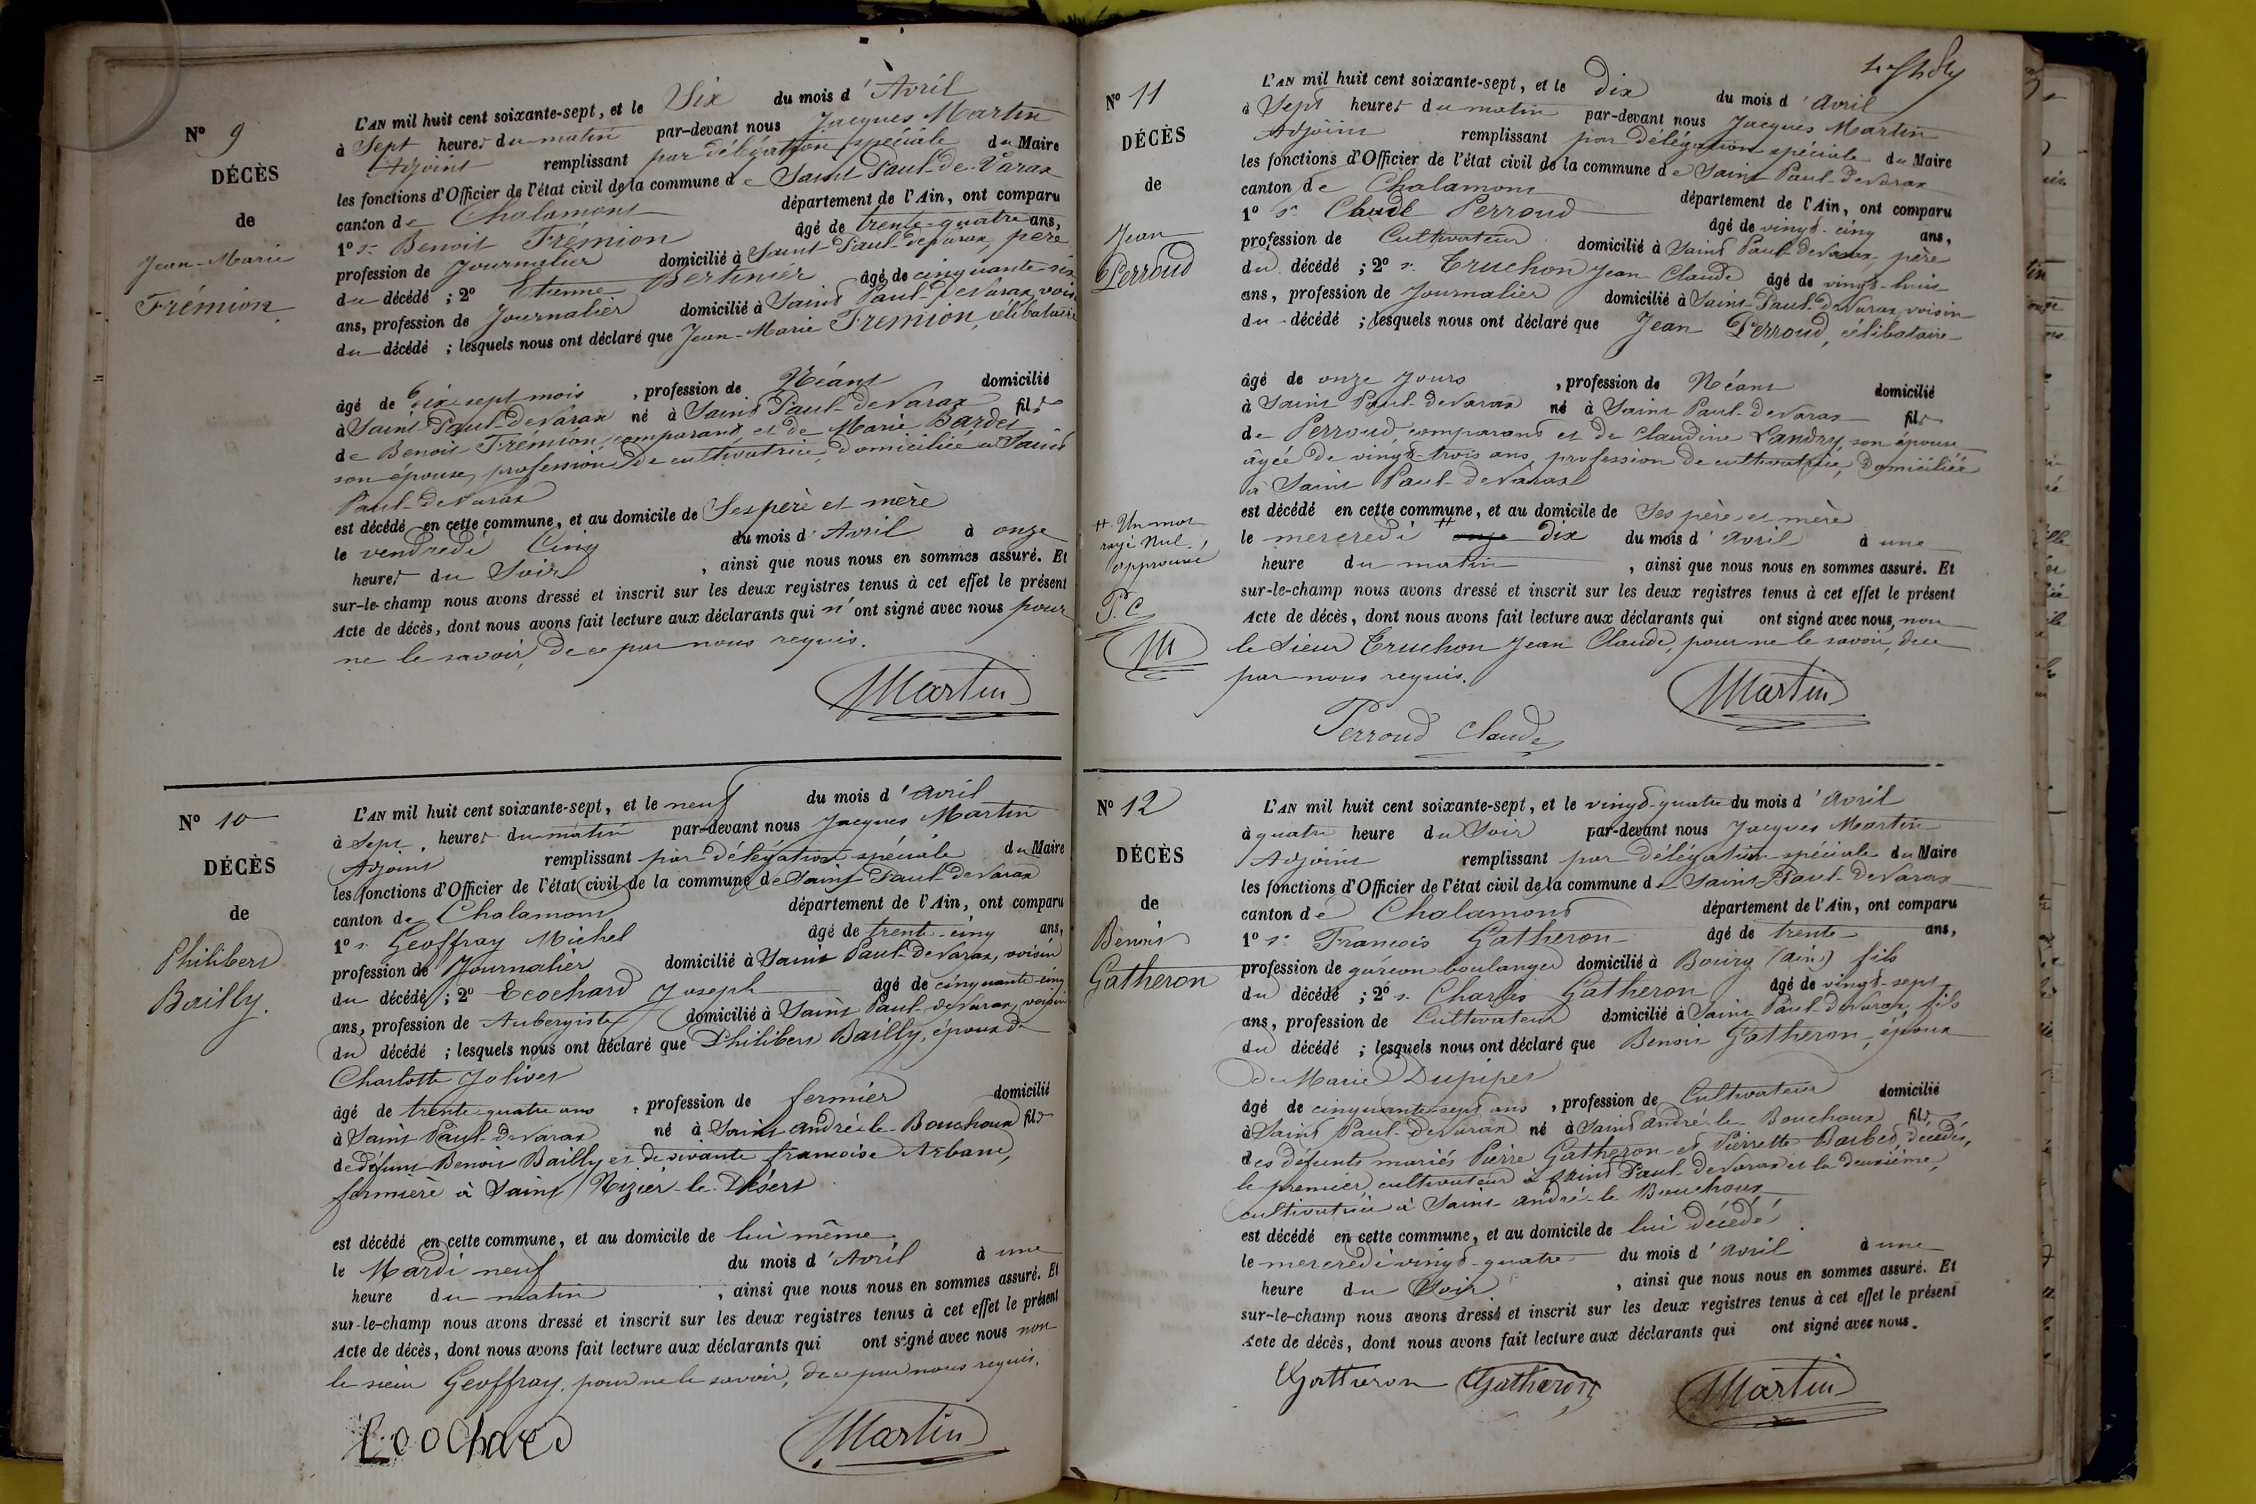 N° 9
DÉCÈS
de
Jean-Marie
Frémion.
L'AN mil huit cent soixante-sept, et le Six du mois d'Avril
à Sept heures du matin par-devant nous Jacques Martin
Adjoint remplissant par délégation spéciale du Maire
les fonctions d'Officier de l'état civil de la commune de Saint Paul-de-Varax
canton de Chalamont département de l'Ain, ont comparu
1° sr Benoit Frémion âgé de trente-quatre ans,
profession de Journalier domicilié à Saint Paul-deVarax, père
du décédé ; 2° Etienne Berthier âgé de cinquante-six
ans, profession de Journalier domicilié à Saint Paul-deVarax, voisin
du décédé ; lesquels nous ont déclaré que Jean-Marie Frémion, célibataire
âgé de dix-sept mois , profession de Néant domicilié
à Saint Paul-deVarax né à Saint Paul-deVarax fils
de Benoit Frémion, comparant et de Marie Bardet
son épouse, profession de cultivatrice, domiciliée à Saint
Paul-deVarax
est décédé en cette commune, et au domicile de Ses père et mère
le vendredi Cinq du mois d'Avril à onze
heures du Soir , ainsi que nous nous en sommes assuré. Et
sur-le-champ nous avons dressé et inscrit sur les deux registres tenus à cet effet le présent
Acte de décès, dont nous avons fait lecture aux déclarants qui n'ont signé avec nous pour
ne le savoir, de ce par nous requis.
Martin
N° 10
DÉCÈS
de
Philibert
Bailly.
L'AN mil huit cent soixante-sept, et le neuf du mois d'avril
à Sept heures du matin par-devant nous Jacques Martin
Adjoint remplissant par délégation spéciale du Maire
les fonctions d'Officier de l'état civil de la commune de Saint Paul-deVarax
canton de Chalamont département de l'Ain, ont comparu
1° sr Geoffray Michel âgé de trente-cinq ans,
profession de Journalier domicilié à Saint Paul-deVarax, voisin
du décédé ; 2° Ecochard Joseph âgé de cinquante-cinq
ans, profession de Aubergiste domicilié à Saint Paul-deVarax, voisin
du décédé ; lesquels nous ont déclaré que Philibert Bailly, époux de
Charlotte Jolivet
âgé de trente-quatre ans , profession de fermier domicilié
à Saint Paul-deVarax né à Saint andré-le-Bouchoux fils
de défunt Benoit Bailly et de vivante francoise Arbane,
fermière à Saint Nizier-le-Désert
est décédé en cette commune, et au domicile de lui même
le Mardi neuf du mois d'Avril à une
heure du matin , ainsi que nous nous en sommes assuré. Et
sur-le-champ nous avons dressé et inscrit sur les deux registres tenus à cet effet le présent
Acte de décès, dont nous avons fait lecture aux déclarants qui ont signé avec nous non
le sieur Geoffray, pour ne le savoir, de ce par nous requis.
Ecochard
Martin
N° 11
DÉCÈS
de
Jean
Perroud
L'AN mil huit cent soixante-sept, et le Dix du mois d'avril
à Sept heures du matin par-devant nous Jacques Martin
Adjoint remplissant par délégation spéciale du Maire
les fonctions d'Officier de l'état civil de la commune de Saint Paul-deVarax
canton de Chalamont département de l'Ain, ont comparu
1° sr Claude Perroud âgé de vingt-cinq ans,
profession de Cultivateur domicilié à Saint Paul-deVarax, père
du décédé ; 2° sr Truchon Jean Claude âgé de vingt-huit
ans, profession de Journalier domicilié à Saint-Paul-deVarax, voisin
du décédé ; lesquels nous ont déclaré que Jean Perroud, célibataire
âgé de onze Jours , profession de Néant domicilié
à Saint Paul-deVarax né à Saint Paul-deVarax fils
de Perroud, comparant et de Claudine Landry, son épouse
âgée de vingt-trois ans, profession de cultivatrice, Domiciliée
à Saint Paul-deVarax
est décédé en cette commune, et au domicile de Ses père et mère
le mercredi # Dix du mois d'avril à une
heure du matin , ainsi que nous nous en sommes assuré. Et
sur-le-champ nous avons dressé et inscrit sur les deux registres tenus à cet effet le présent
Acte de décès, dont nous avons fait lecture aux déclarants qui ont signé avec nous, non
le Sieur Truchon Jean Claude, pour ne le savoir, de ce
par nous requis.
# Un mot
rayé Nul,
approuvé
P. C
M
Perroud Claude
Martin
N° 12
DÉCÈS
de
Benoit
Gatheron
L'AN mil huit cent soixante-sept, et le vingt-quatre du mois d'avril
à quatre heure du Soir par-devant nous Jacques Martin
Adjoint remplissant par délégation spéciale du Maire
les fonctions d'Officier de l'état civil de la commune de Saint Paul-deVarax
canton de Chalamont département de l'Ain, ont comparu
1° sr Francois Gatheron âgé de trente ans,
profession de garcon boulanger domicilié à Bourg (ain) fils
du décédé ; 2° sr Charles Gatheron âgé de vingt-sept
ans, profession de Cultivateur domicilié à Saint Paul-deVarax, fils
du décédé ; lesquels nous ont déclaré que Benoit Gatheron, époux
de Marie Dupipet
âgé de cinquante-sept ans , profession de Cultivateur domicilié
à Saint Paul-deVarax né à Saint andré-le Bouchoux fils
des défunts mariés Pierre Gatheron et Pierrette Barbet, décédés,
le premier cultivateur à Saint Paul-deVarax et la deuxième,
cultivatrice à Saint andré-le Bouchoux
est décédé en cette commune, et au domicile de lui décédé.
le mercredi vingt-quatre du mois d'avril à une
heure du Soir , ainsi que nous nous en sommes assuré. Et
sur-le-champ nous avons dressé et inscrit sur les deux registres tenus à cet effet le présent
Acte de décès, dont nous avons fait lecture aux déclarants qui ont signé avec nous.
Gatheron Gatheron Martin